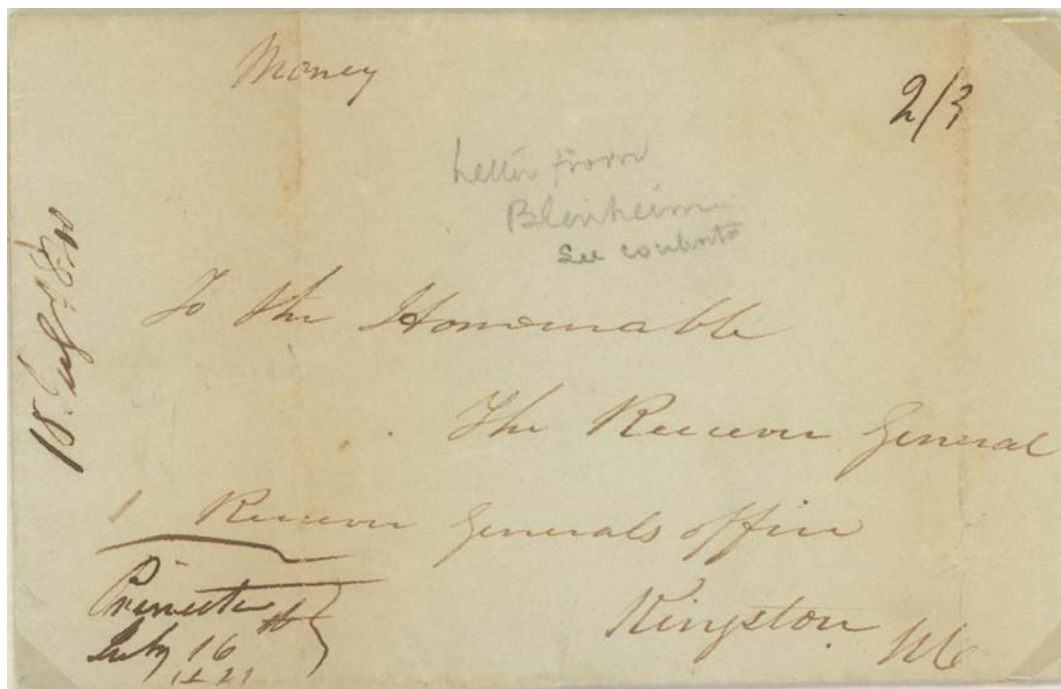 Money
2/3
Letter from
Blenheim
See contents
To the Honourable
The Receiver General
Receiver Generals office
Kingston
July 16